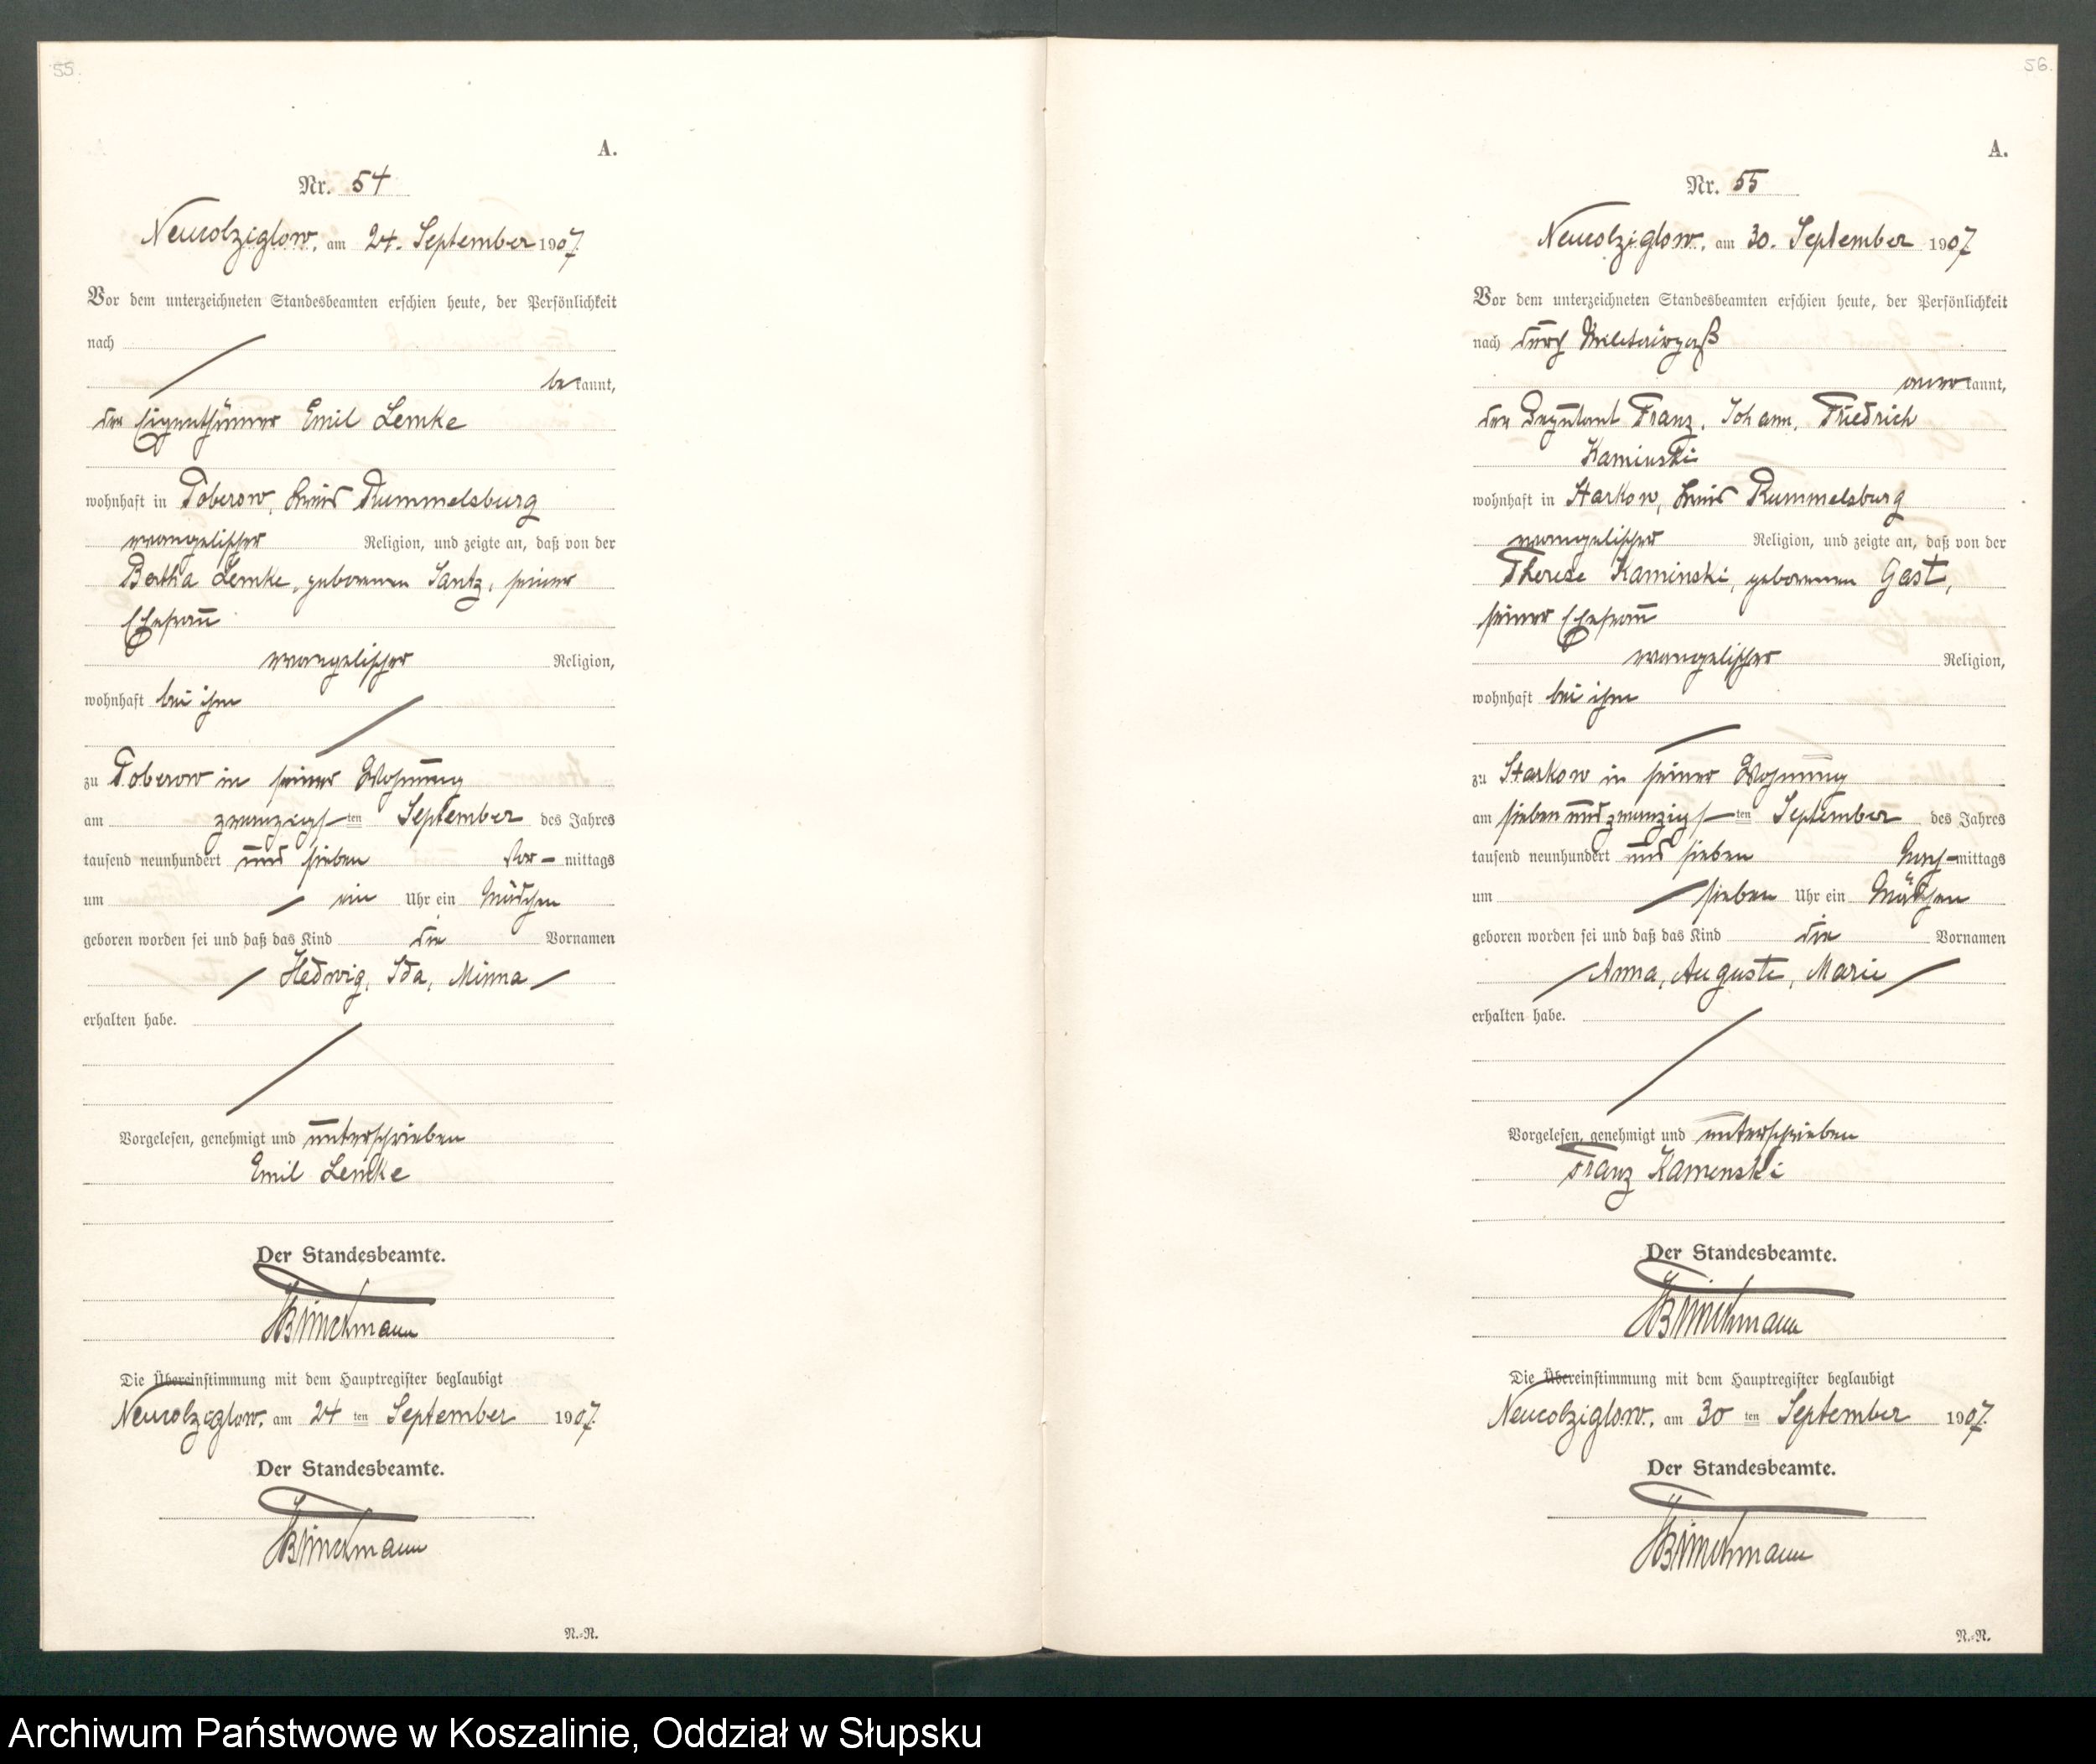 55.
A.
Nr. 54
Neukolziglow, am 24. September 1907.
Vor dem unterzeichneten Standesbeamten erschien heute, der Persönlichkeit
nach
bekannt,
der Eigenthümer Emil Lemke
wohnhaft in Poberow, Kreis Rummelsburg
evangelischer Religion, und zeigte an, daß von der
Bertha Lemke, geborenen Jantz, seiner
Ehefrau
evangelischer Religion,
wohnhaft bei ihm
zu Poberow in seiner Wohnung
am zwanzigsten September des Jahres
tausend neunhundert und sieben Vor-mittags
um ein Uhr ein Mädchen
geboren worden sei und daß das Kind die Vornamen
Hedwig, Ida, Minna
erhalten habe.
Vorgelesen, genehmigt und unterschrieben
Emil Lemke
Der Standesbeamte.
Brinckmann
Die Übereinstimmung mit dem Hauptregister beglaubigt
Neukolziglow, am 24 ten September 1907.
Der Standesbeamte.
Brinckmann
N.-N.
56.
A.
Nr. 55
Neukolziglow, am 30. September 1907
Vor dem unterzeichneten Standesbeamten erschien heute, der Persönlichkeit
nach durch Militairpaß
anerkannt,
der Deputant Franz, Johann, Friedrich
Kaminski
wohnhaft in Starkow, Kreis Rummelsburg
evangelischer Religion, und zeigte an, daß von der
Therese Kaminski, geborenen Gast,
seiner Ehefrau
evangelischer Religion,
wohnhaft bei ihm
zu Starkow in seiner Wohnung
am siebenundzwanzigsten September des Jahres
tausend neunhundert und sieben Nach-mittags
um sieben Uhr ein Mädchen
geboren worden sei und daß das Kind die Vornamen
Anna, Auguste, Marie
erhalten habe.
Vorgelesen, genehmigt und unterschrieben
Franz Kamenski
Der Standesbeamte.
Brinckmann
Die Übereinstimmung mit dem Hauptregister beglaubigt
Neukolziglow, am 30 ten September 1907.
Der Standesbeamte.
Brinckmann
N.-N.
Archiwum Państwowe w Koszalinie, Oddział w Słupsku